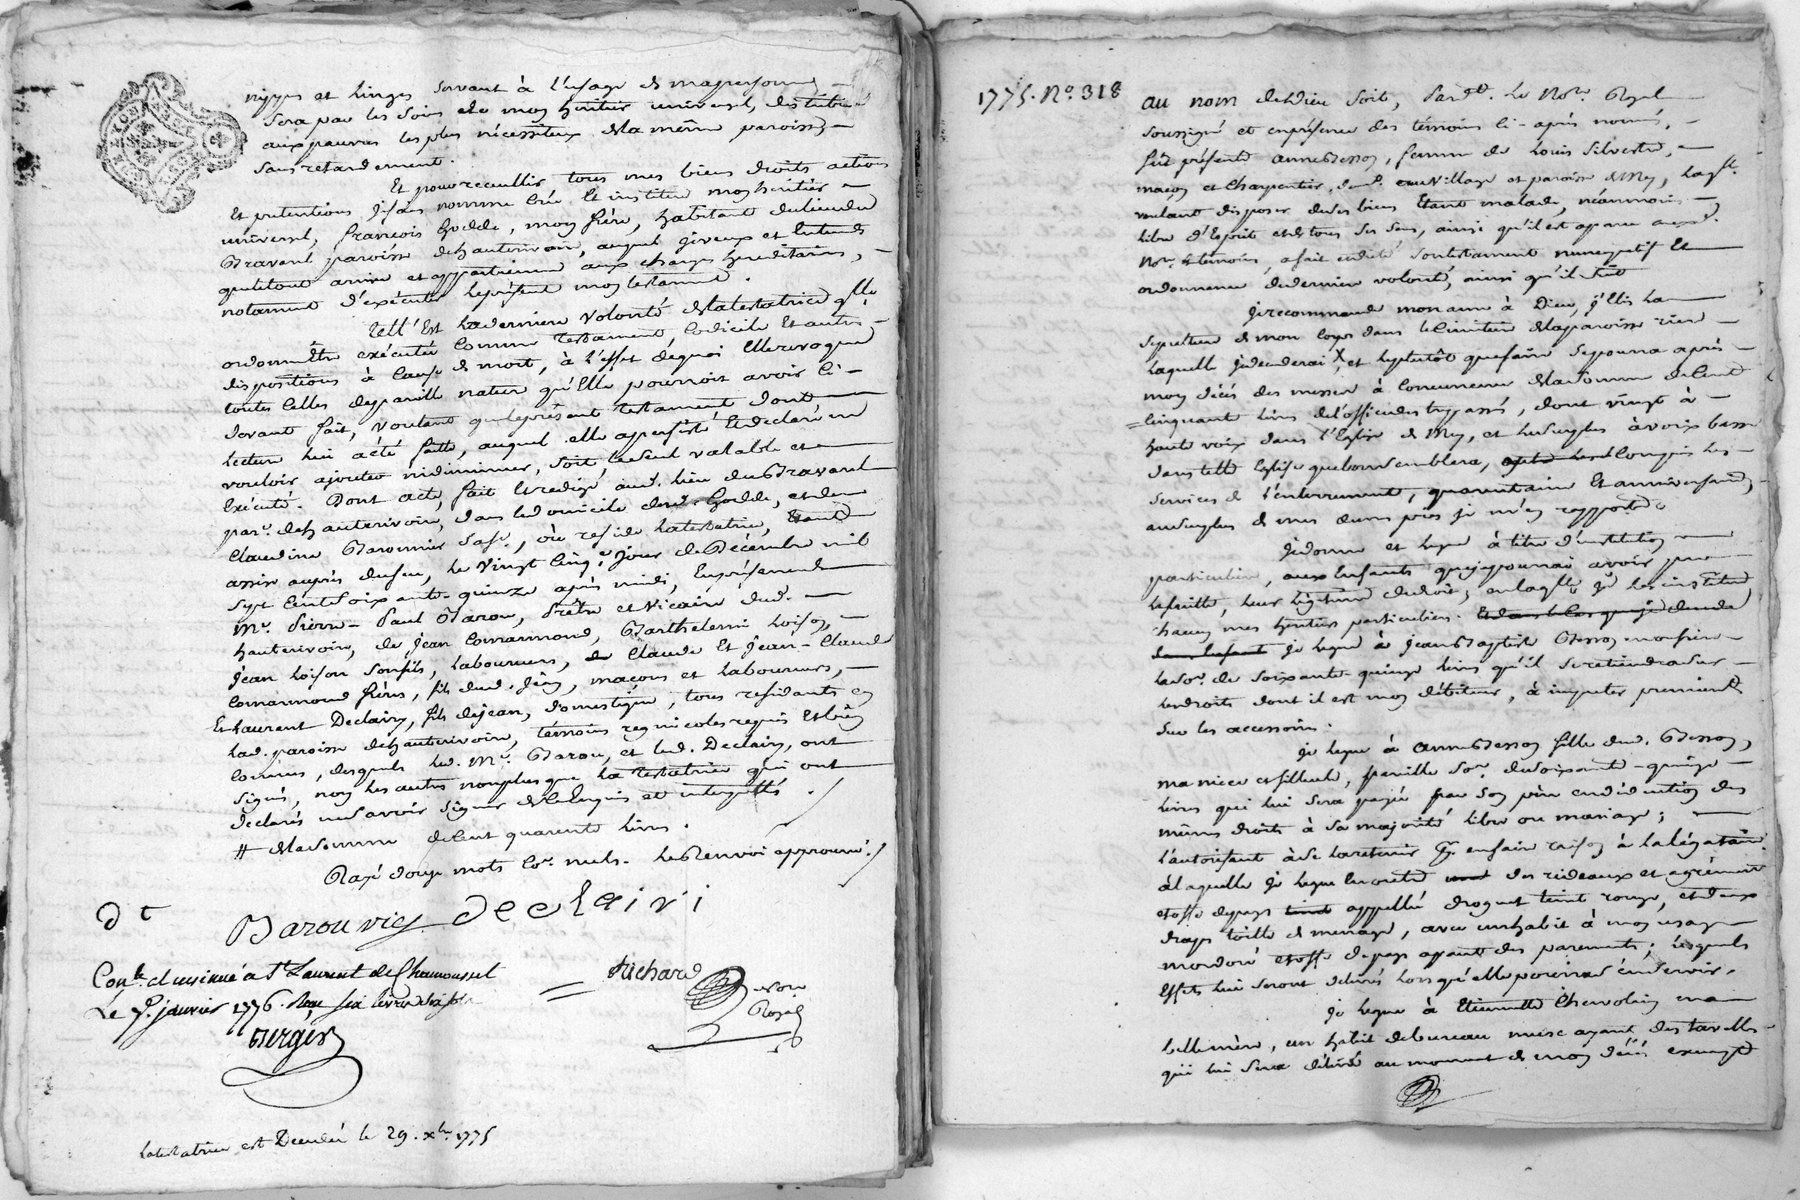 nippes et linges servant à l'usage de ma personne
sera par les soins de mon héritier universel, distribué
aux pauvres les plus nécessiteux de la même paroisse
sans retardement.
Et pour recueillir tous mes biens droits actions
et prétentions j'ai nommé créé et institué mon héritier
universel, françois Godde, mon frère, habitant du lieu du
Bravard paroisse de hauterivoire, auquel je veux et entends
que le tout arrive et appartienne aux charges héréditaires,
notament d'exécuter le présent mon testament.
Telle est la dernière volonté de la testatrice qu'elle
ordonne être exécutée comme testament, codicile et autres
dispositions à cause de mort, à l'effet de quoi elle revoque
toutes celles de pareille nature qu'elle pourroit avoir ci-
devant fait, voulant que le présent testament dont
lecture lui a été faitte, auquel elle a persisté et déclaré ne
vouloir ajouter ni diminuer, soit le seul valable et
exécuté. Dont acte, fait et redigé aud. lieu du Bravard
par. de hauterivoire, dans le domicile dud. Godde, et de
Claudine Baronnier sa fe., où reside la testatrice, étant
assise auprès du feu, le vingt cinq jour de Décembre mil
sept cents soixante-quinze après midi, en présence de
Mre. Pierre-Paul Barou, Prêtre et Vicaire dud.
hauterivoire, de Jean Comarmond, Barthelemi Loison,
Jean Loison son fils, laboureurs, de Claude et Jean-Claude
Comarmond frères, fils dud. Jean, maçons et laboureurs,
Et Laurent Declairy, fils de jean, domestique, tous residants en
lad. paroisse de hauterivoire, témoins regnicoles requis et bien
connus, desquels led. Mre. Barou, et led. Declairy, ont
signé, non les autres non plus que la testatrice qui ont
declarés ne savoir signer de ce enquis et interpellés.
# de la somme de cent quarente livres.
Rayé douze mots co. nuls. le Renvoi approuvé.
Barou vic. Declairi
Conlé. et insinué a St Laurent de Chamousset
Le janvier 1776. Reçu six livres dix sols
Berger
Richard
Nore
Royal
La testatrice est Decedée le 29. Xbre 1775
1775. No. 318
Au nom de Dieu soit, Pardt. le Nore. Royal
soussigné et en présence des témoins ci-après només,
fut présente anne Besson, femme de Louis Silvestre,
maçon et Charpentier, demt. au village et paroisse de Mey, laqlle.
voulant disposer de ses biens étant malade, néanmoins
libre d'Esprit et de tous ses sens, ainsi qu'il est aparu auxd.
Nore. et témoins, a fait et dicté son testament nuncupatif et
ordonnance de derniere volonté, ainsi qu'il suit
Je recommande mon ame à Dieu, j'élis la
sepulture de mon corps dans le Cimetiere de la paroisse rière
laquelle je decederai, et le plutôt que faire se pourra après
mon décès des messes à concurrence de la somme de cent
cinquante livres de l'office des trepassés, dont vingt à
haute voix dans l'Eglise de Mey, et le surplus à voix basse
dans telle Eglise que bon semblera, compris les
services de l'enterrement, quarantaine et anniversaire,
au surplus de mes œuvres pies je m'en rapporte.
Je donne et legue à titre d'institution
particuliere, aux enfants que je pourrai avoir par
la suitte, leur légitime de droit, en laqlle. je les institue
chacun mes heritiers particuliers. Et dans le cas que je decede
sans enfant je legue à Jean Baptiste Besson mon frere
la so. de soixante-quinze livres qu'il se retiendra sur
les droits dont il est mon débiteur, à imputer premierement
sur les accessoires.
Je legue à anne Besson fille dud. Besson,
ma niece et filleule, pareille so. de soixante-quinze
livres qui lui sera payée par son père en déduction des
mêmes droits à sa majorité libre ou mariage;
l'autorisant à se la retenir pr. en faire raison à la légataire
à laquelle je legue en outre des rideaux et agrément
etoffe de pays teint appellée droguet teint rouge, et deux
draps toille de menage, avec un habit à mon usage
mordoré etoffe de pays ayant des parements; lesquels
effets lui seront delivrés lorsqu'elle pourra s'en servir.
Je legue à Etiennette Chevolin ma
belle mère, un habit de bureau musc ayant des tavelles
qui lui sera délivré au moment de mon décès exempt